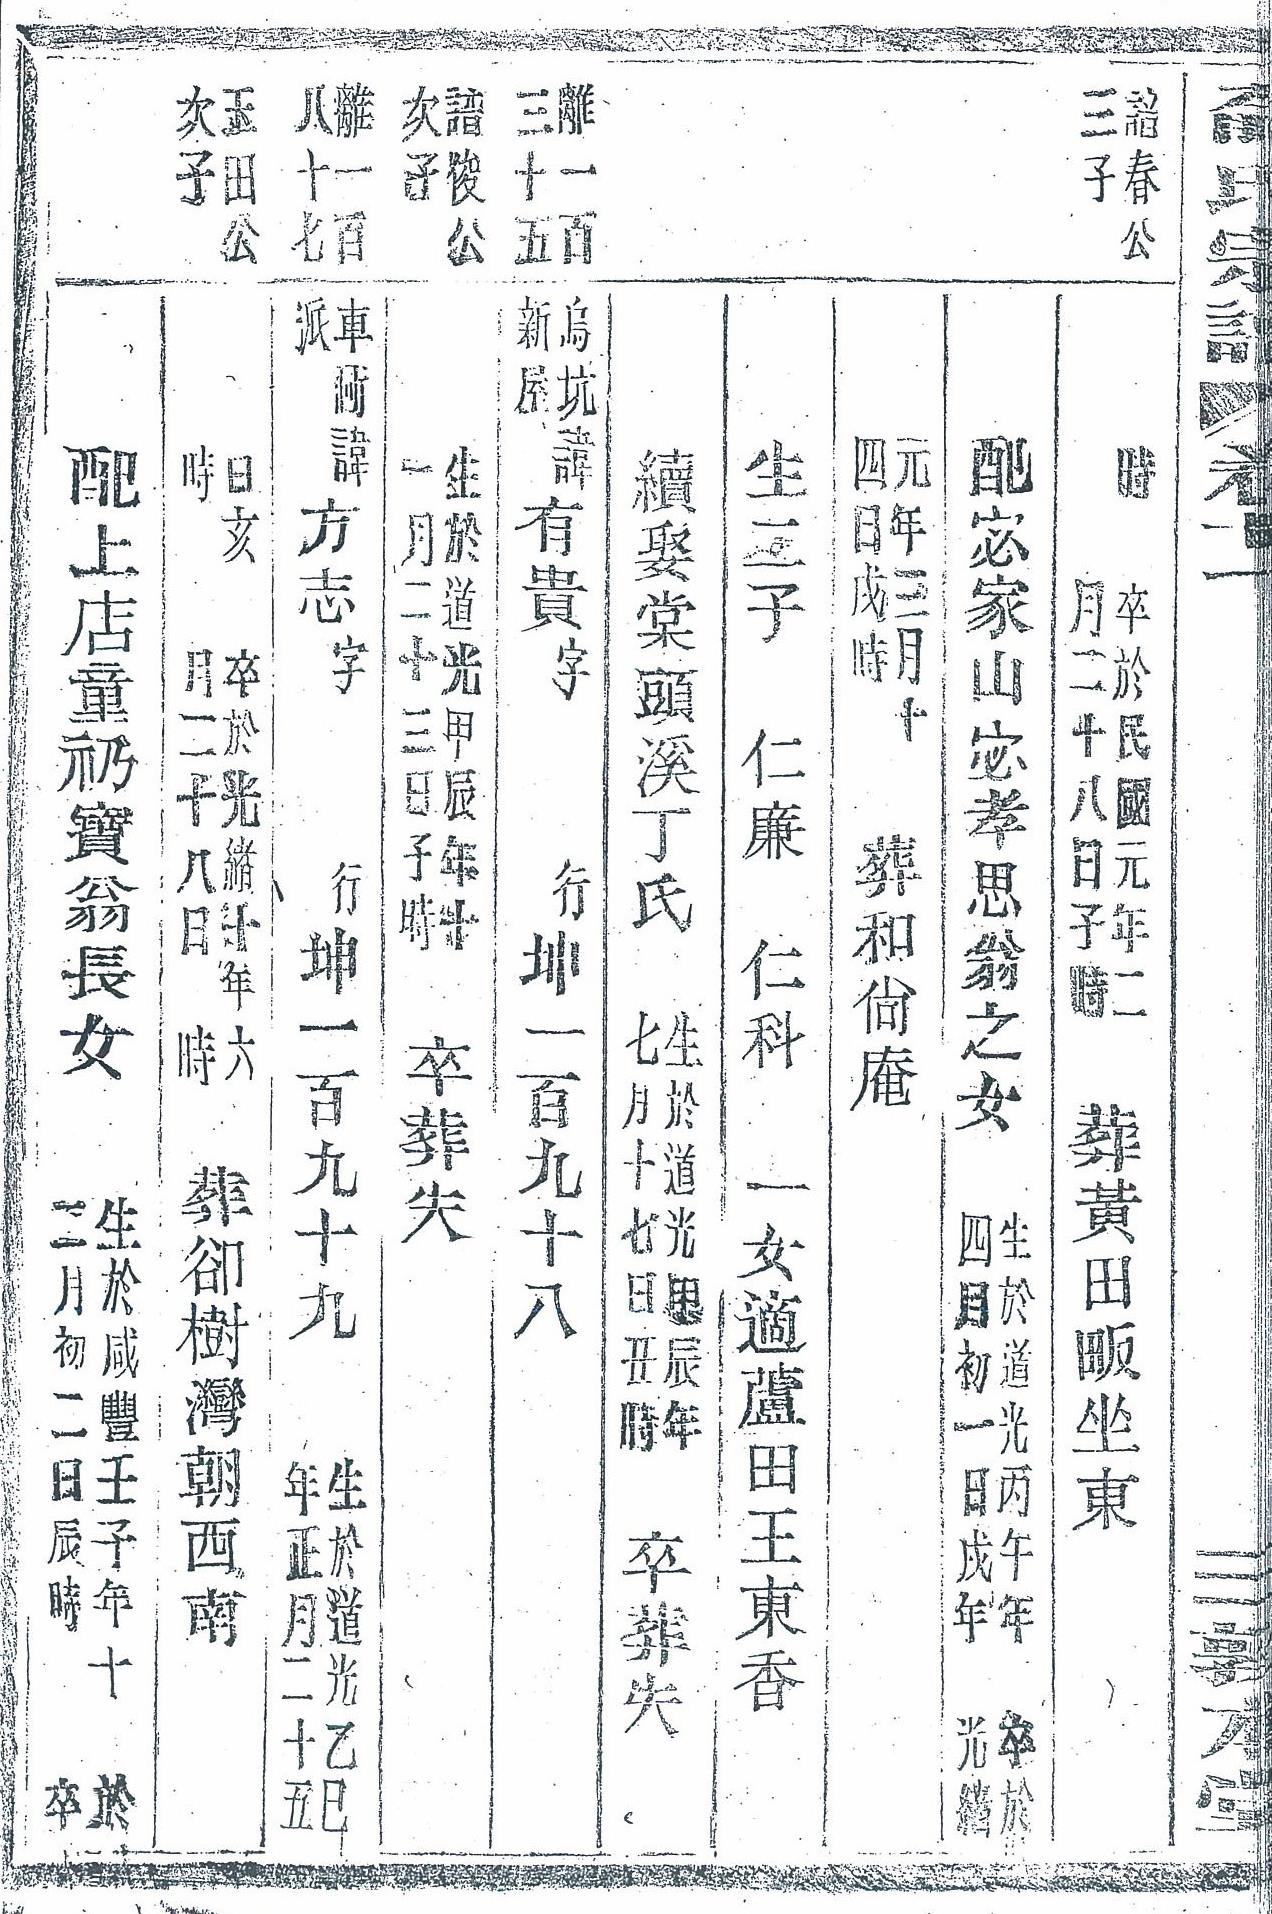 氏宗譜 卷二
諳春公
三子
時
卒於民國元年二
月二十八日子時
葬黃田畈坐東
配宓家山宓孝思翁之女
生於道光丙午年
四月初一日戌年
卒於
光緒
元年三月十
四日戌時
葬和尙庵
生二子 仁廉 仁科 一女適蘆田王東香
續娶棠頭溪丁氏
生於道光 辰年
七月十七日丑時
卒葬失
離一百
三十五
烏坑諱
新屋
有貴字 行坤一百九十八
諳俊公
次子
生於道光甲辰年十
一月二十三日子時
卒葬失
離一百
八十七
車衕諱
派
方志字 行坤一百九十九
生於道光乙巳
年正月二十五
玉田公
次子
日亥
時
卒於光緒 年六
月二十八日 時
葬卻樹灣朝西南
配上店童礽寶翁長女
生於咸豐壬子年十
二月初二日辰時
於
卒